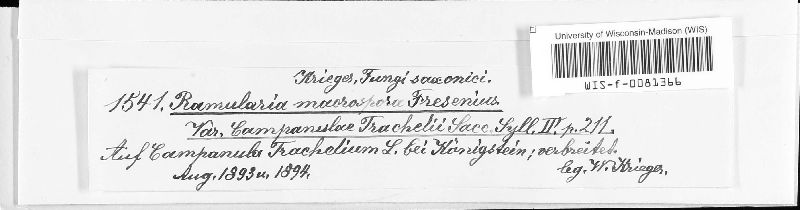 University of Wisconsin-Madison (WIS)
WIS-f-0081366
Krieger, Fungi saxonici.
1541. Ramularia macrospora Fresenius.
Var. Campanulae Trachelii Sacc. Syll. IV. p. 211.
Auf Campanula Trachelium L. bei Königstein; verbreitet.
Aug. 1893 u. 1894.
leg. W. Krieger.